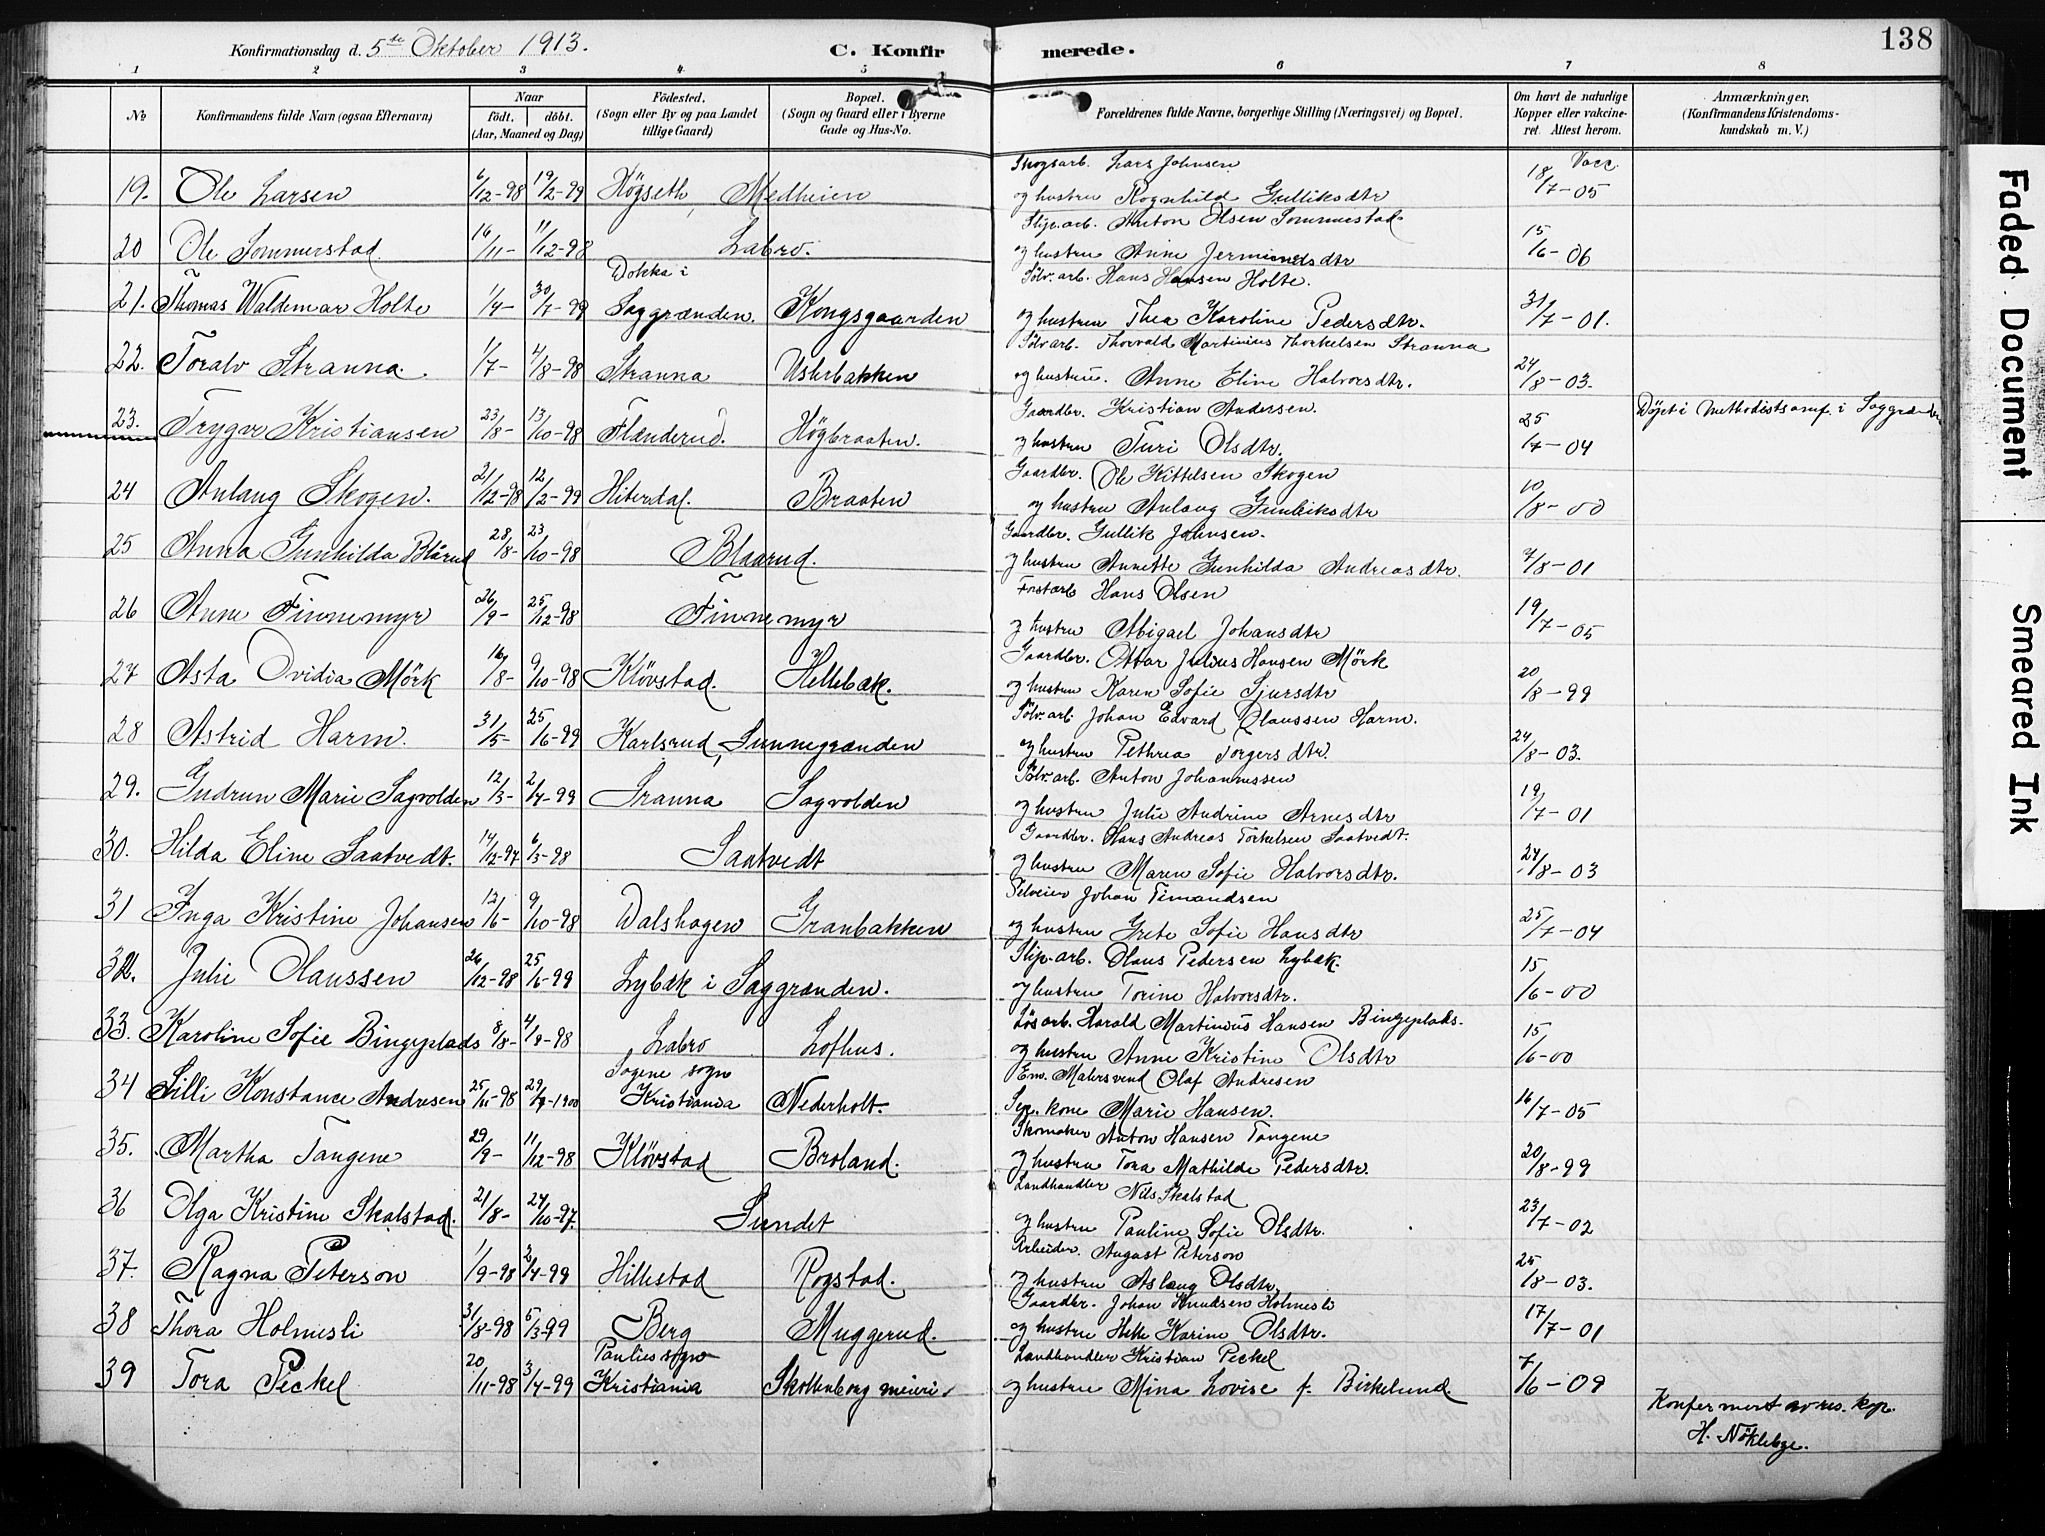 138
Konfirmationsdag d. 5te Oktober 1913. C. Konfirmerede.
1 2 3 4 5 6 7 8
No Konfirmandens fulde Navn (ogsaa Efternavn) Naar født. døbt. (Aar, Maaned og Dag) Fødested. (Sogn eller By og paa Landet tillige Gaard) Bopæl. (Sogn og Gaard eller i Byerne Gade og Hus-No. Forældrenes fulde Navne, borgerlige Stilling (Næringsvei) og Bopæl. Om havt de naturlige Kopper eller vakcineret. Attest herom. Anmærkninger. (Konfirmandens Kristendomskundskab m. V.)
Skogsarb. Lars Johnsen Vacc.
19. Ole Larsen 6/12-98 19/2-99 Högseth, Medheien og hustru Ragnhild Gulliksdtr 18/7-05
Slip.arb. Anton Olsen Sommerstad
20 Ole Sommerstad 16/11- 11/12-98 Labro. og hustru Anne Jermundsdtr 15/6-06
Dokka i Sölv.arb. Hans Hansen Holte.
21. Thomas Waldemar Holte 1/4- 30/7-99 Saggrænden. Kongsgaarden og hustru Thea Karoline Pedersdtr. 31/7-01.
Sölvarb. Thorvald Martinius Thorkelsen Stranna
22. Toralv Stranna. 1/7- 4/8-98 Stranna Uslebakken og hustru. Anne Eline Halvorsdtr. 24/8-03.
Gaardbr. Kristian Andersen. Döpt i Methodistsamf. i Saggrænden
23. Trygve Kristiansen 23/8- 13/10-98 Flænderud. Högbraaten. og hustru Turi Olsdtr. 25/7-04
Gaardbr. Ole Kittelsen Skogen
24 Aslaug Skogen. 21/12-98 12/2-99 Hiterdal. Braaten og hustru Aslaug Gunleiksdtr 10/8-00
Gaardbr. Gullik Johnsen.
25 Anna Gunhilda Blårud 28/8- 23/10-98 Blaarud. og hustru Annette Gunhilda Andreasdtr. 7/8-01
Forstarb Hans Olsen
26 Anne Finnemyr 26/9- 25/12-98 Finnemyr og hustru Abigael Johansdtr 19/7-05
Gaardbr. Ottar Julius Hansen Mörk
27 Asta Ovidia Mörk 16/8- 9/10-98 Klövstad. Hellebæk. og hustru Karen Sofie Sjursdtr 20/8-99
Sölv.arb. Johan Edvard Olaussen Harm.
28 Astrid Harm. 31/5- 25/6-99 Karlsrud, Sunnegrænden og hustru Pethrea Torgersdtr. 24/8-03.
Sölv.arb. Anton Johannessen
29. Gudrun Marie Sagvolden 12/3- 2/4-99 Stranna Sagvolden og hustru Julie Andrine Arnesdtr 19/7-01
Gaardbr. Hans Andreas Torkelsen Saatvedt.
30. Hilda Eline Saatvedt. 14/12-97 6/3-98 Saatvedt og hustru Maren Sofie Halvorsdtr. 24/8-03
Selveier Johan Timandsen
31 Inga Kristine Johansen 12/6- 9/10-98 Dalshagen Granbakken og hustru Grete Sofie Hansdtr 25/7-04
Slip.arb. Olaus Pedersen Lybæk.
32. Julie Olaussen 26/12-98 25/6-99 Lybæk i Saggrænden. og hustru Torine Halvorsdtr. 15/6-00
Lösarb. Harald Martinius Hansen Bingeplads.
33. Karoline Sofie Bingeplads 8/8- 4/9-98 Labro Lofhus. og hustru Anne Kristine Olsdtr 15/6-00
Sagene sogn Em. Malersvend Olaf Andresen
34 Lilli Konstance Andresen 25/11-98 29/7-1900 Kristiania Nederholt. Sep. kone Marie Hansen. 16/7-05
Skomaker Anton Hansen Tangene
35. Martha Tangene 29/9- 11/12-98 Klövstad Broland. og hustru Tora Mathilde Pedersdtr. 20/8-99
Landhandler Nils Skalstad
36 Olga Kristine Skalstad. 21/8- 24/10-97. Sundet og hustru Pauline Sofie Olsdtr. 23/7-02
Arbeider. August Peterson
37. Ragna Peterson 1/9-98 2/4-99 Hillestad Rogstad. og hustru Aslaug Olsdtr. 25/8-03.
Gaardbr. Johan Knudsen Holmesli
38 Thora Holmesli 31/8-98 5/3-99 Berg Muggerud. og hustru Helle Karine Olsdtr. 17/7-01
Paulus sogn Landhandler Kristian Peckel
39 Tora Peckel 20/11-98 3/4-99 Kristiania Skollenborg meieri. og hustru Mina Lovise f. Birkelund. 7/6-09
Konfermert av res. kap.
H. Nöklebye.
Faded Document
Smeared Ink